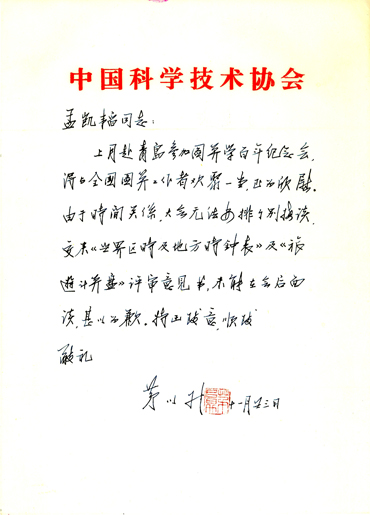 中国科学技术协会
孟凯韬同志：
上月赴青岛参加图算学百年纪念会，
得与全国图算工作者欢聚一堂，至为欣慰。
由于时间关系，大会无法安排个别接谈，
交来《世界区时及地方时钟表》及《旅
游计算盘》评审意见书，未能在会后面
谈，甚以为歉。特函致意，顺致
敬礼
茅以升 十一月廿三日